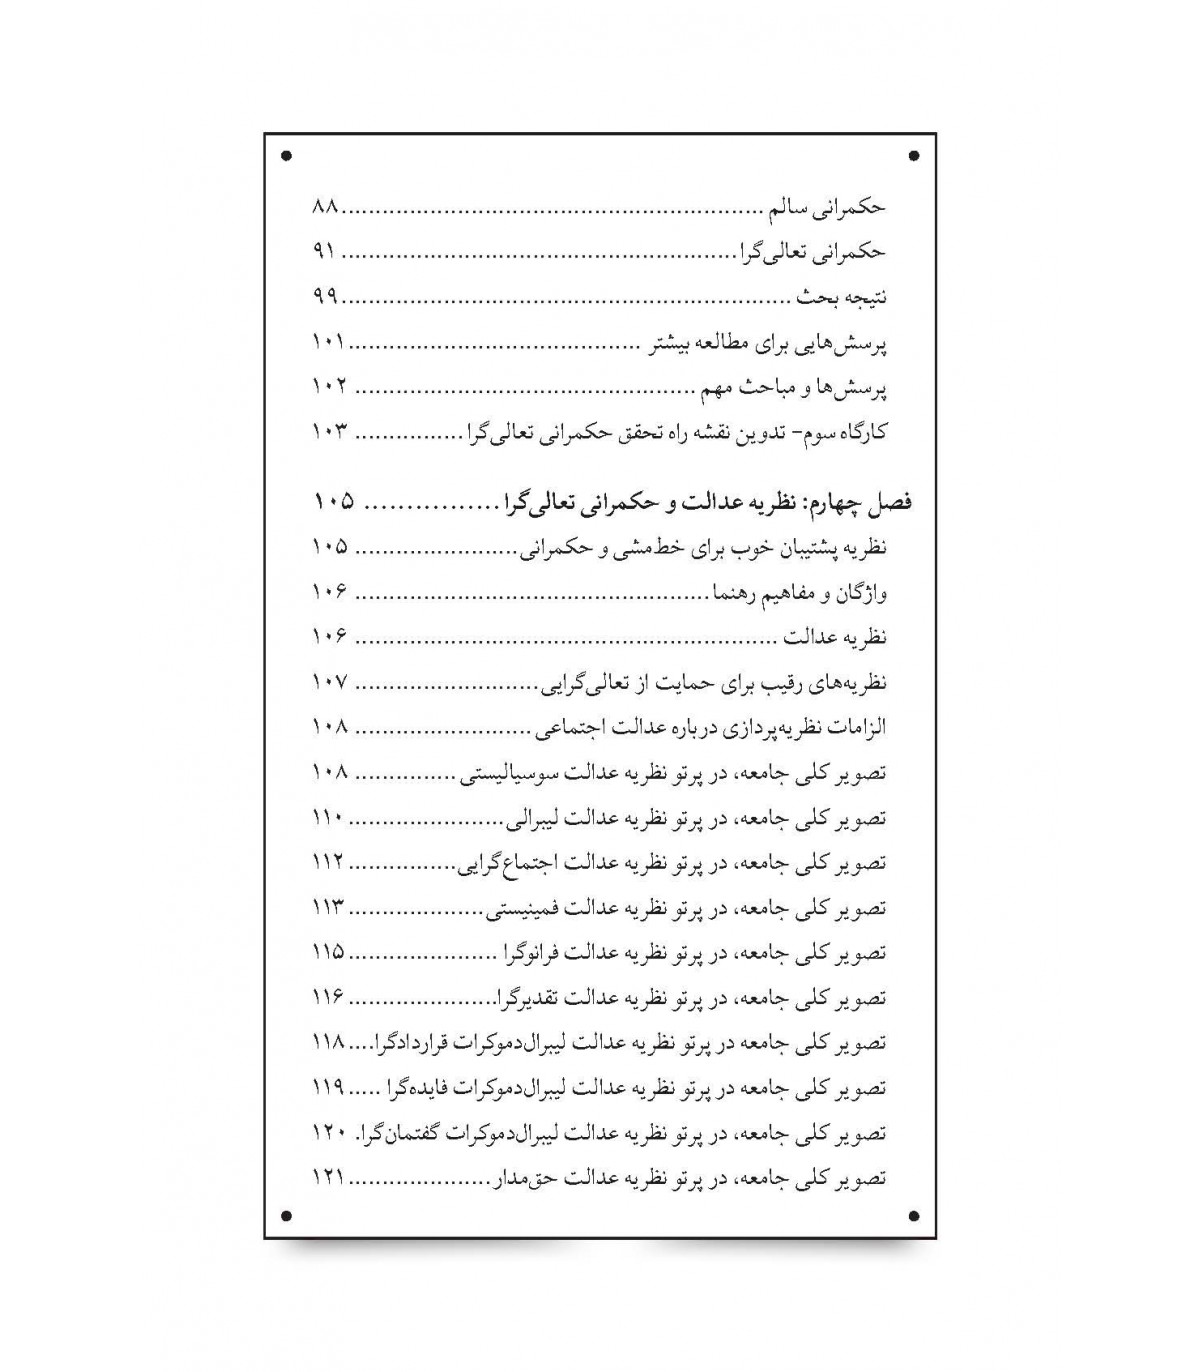 حکمرانی سالم ..............................................................۸۸
حکمرانی تعالی‌گرا.......................................................... ۹۱
نتیجه بحث ..................................................................۹۹
پرسش‌هایی برای مطالعه بیشتر ...........................................۱۰۱
پرسش‌ها و مباحث مهم .................................................. ۱۰۲
کارگاه سوم- تدوین نقشه راه تحقق حکمرانی تعالی‌گرا................ ۱۰۳
فصل چهارم: نظریه عدالت و حکمرانی تعالی‌گرا................ ۱۰۵
نظریه پشتیبان خوب برای خط‌مشی و حکمرانی........................ ۱۰۵
واژگان و مفاهیم رهنما.................................................... ۱۰۶
نظریه عدالت .............................................................. ۱۰۶
نظریه‌های رقیب برای حمایت از تعالی‌گرایی........................... ۱۰۷
الزامات نظریه‌پردازی درباره عدالت اجتماعی.......................... ۱۰۸
تصویر کلی جامعه، در پرتو نظریه عدالت سوسیالیستی............... ۱۰۸
تصویر کلی جامعه، در پرتو نظریه عدالت لیبرالی.......................۱۱۰
تصویر کلی جامعه، در پرتو نظریه عدالت اجتماع‌گرایی................۱۱۲
تصویر کلی جامعه، در پرتو نظریه عدالت فمینیستی....................۱۱۳
تصویر کلی جامعه، در پرتو نظریه عدالت فرانوگرا ......................۱۱۵
تصویر کلی جامعه، در پرتو نظریه عدالت تقدیرگرا......................۱۱۶
تصویر کلی جامعه در پرتو نظریه عدالت لیبرال‌دموکرات قراردادگرا....۱۱۸
تصویر کلی جامعه در پرتو نظریه عدالت لیبرال‌دموکرات فایده‌گرا .....۱۱۹
تصویر کلی جامعه، در پرتو نظریه عدالت لیبرال‌دموکرات گفتمان‌گرا. ۱۲۰
تصویر کلی جامعه، در پرتو نظریه عدالت حق‌مدار.....................۱۲۱